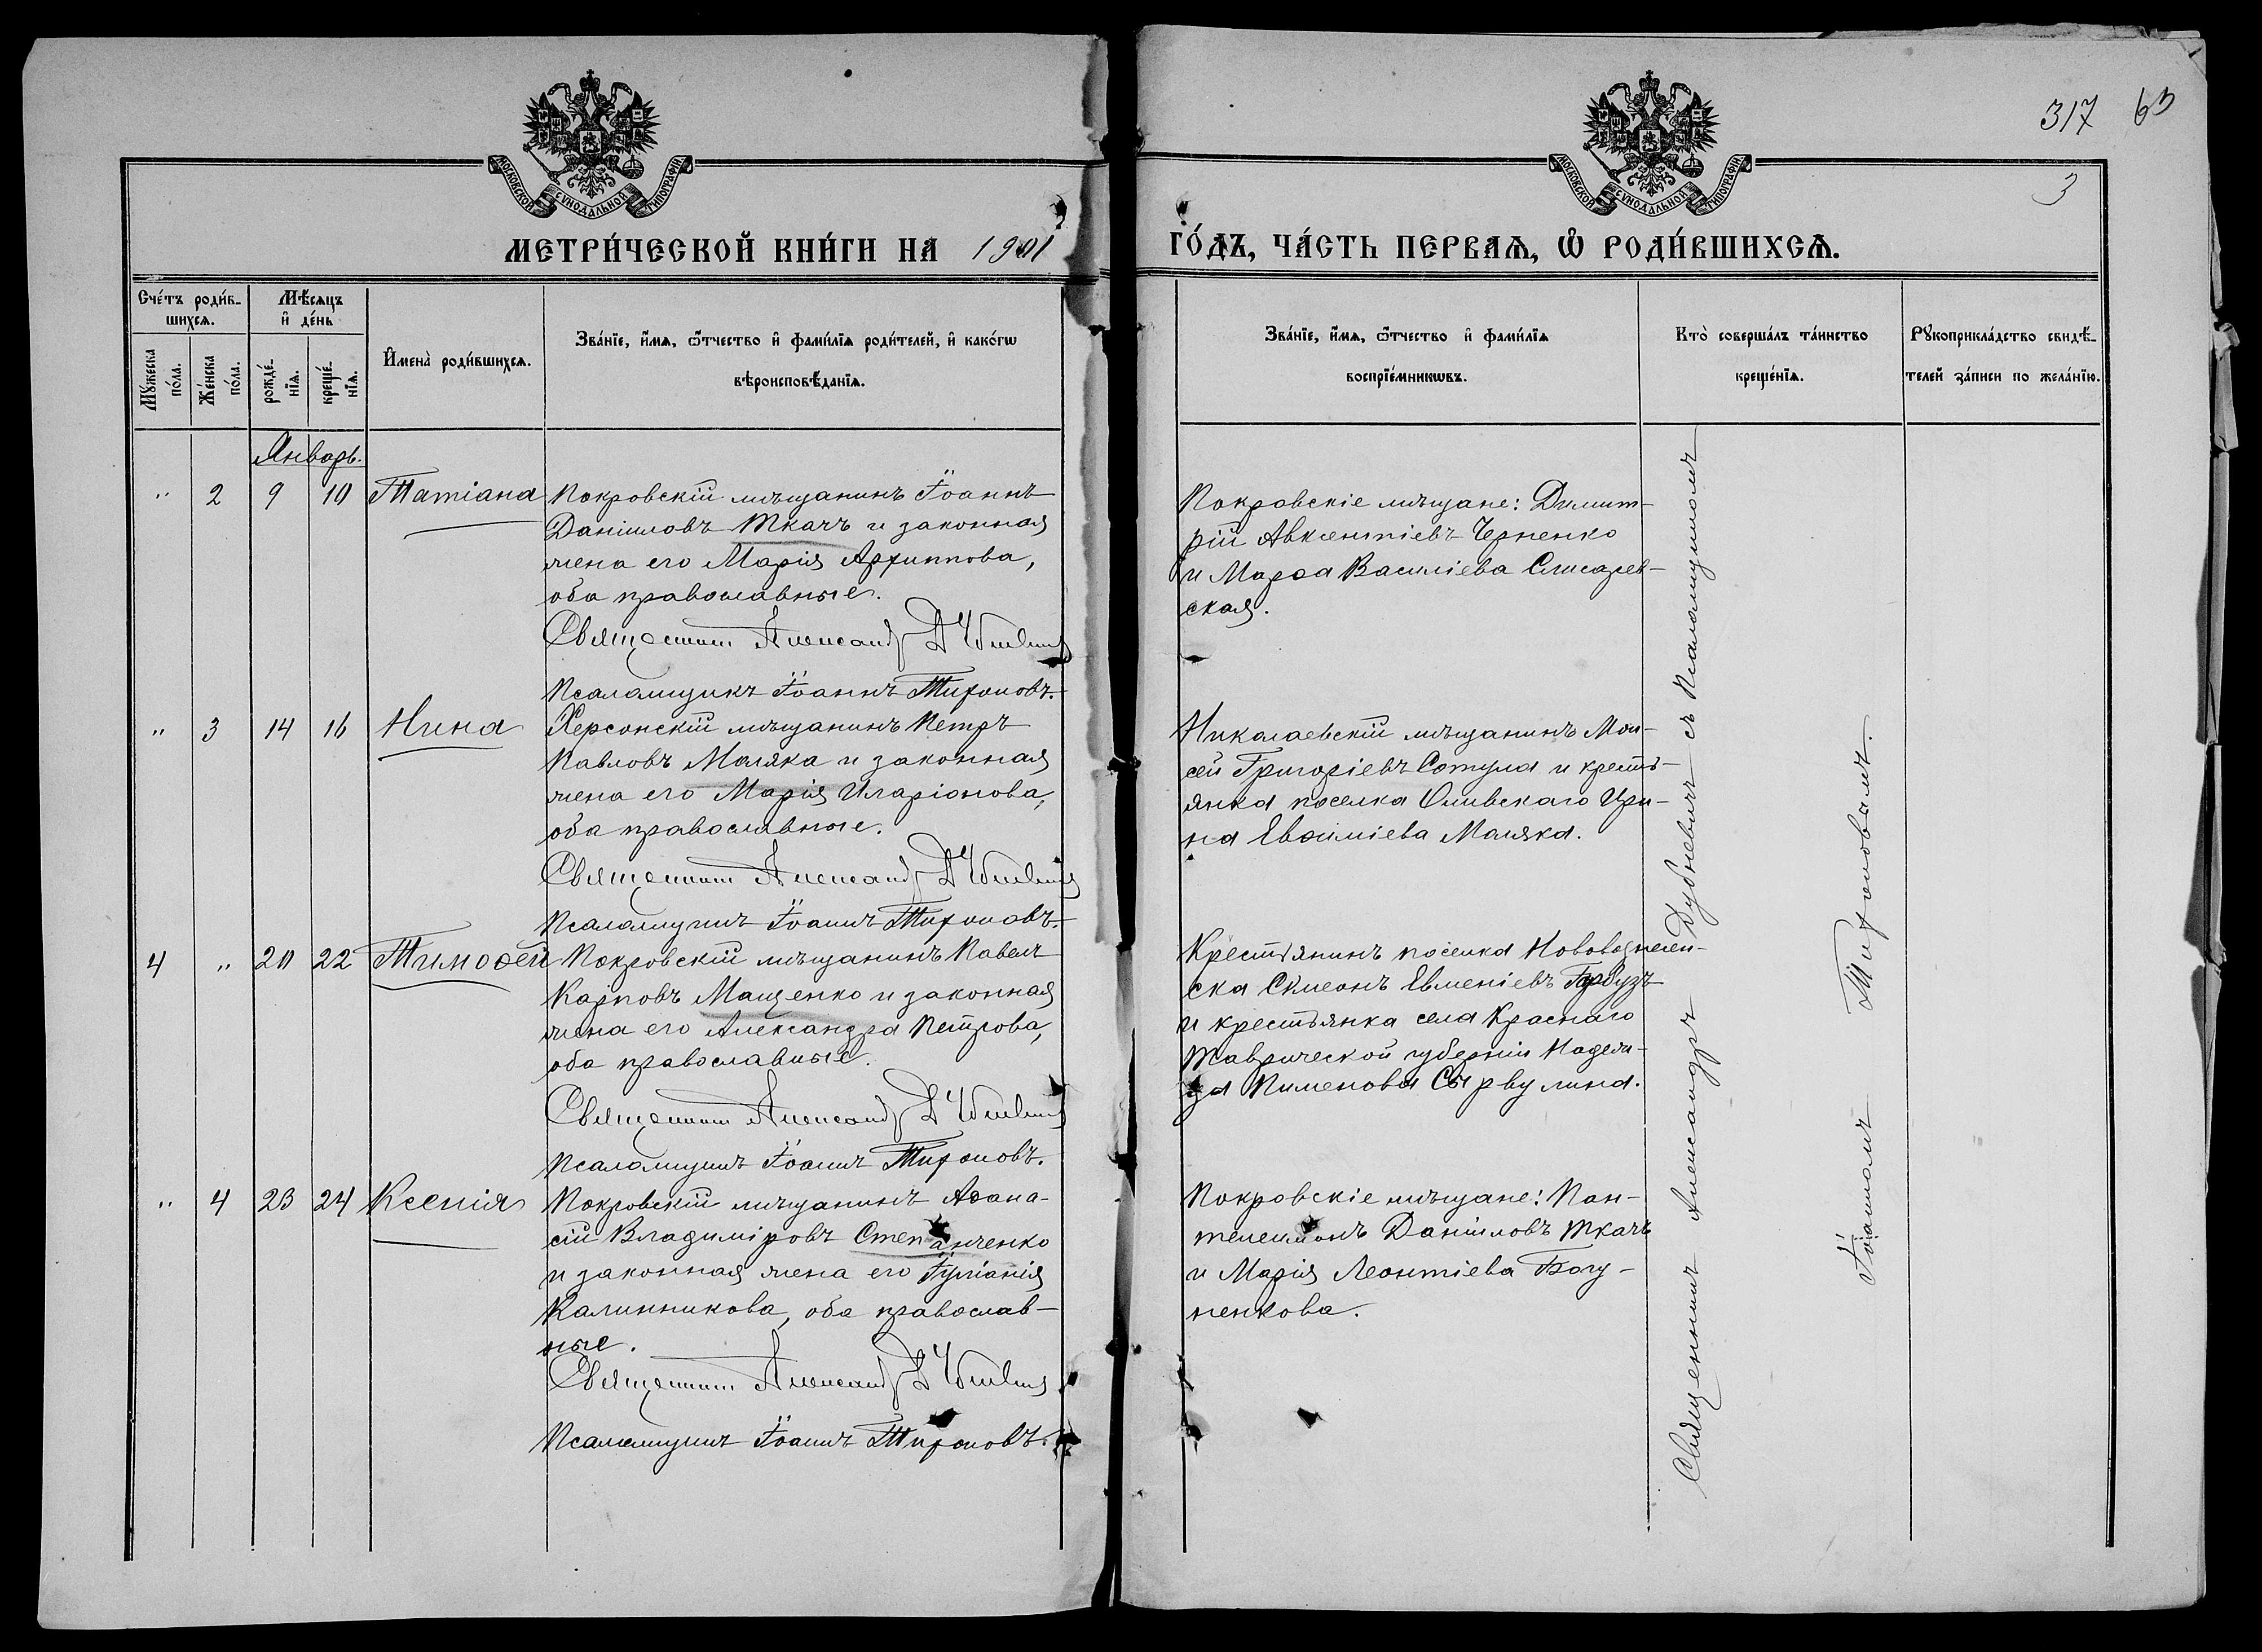 317 63
3
МОСКОВСКОЙ СѴНОДАЛЬНОЙ ТИПОГРАФІИ
МОСКОВСКОЙ СѴНОДАЛЬНОЙ ТИПОГРАФІИ
МЕТРИ́ЧЕСКОЙ КНИ́ГИ НА 1901 ГО́ДЪ, ЧА́СТЬ ПЕРВАѦ, Ѡ҆ РОДИ́ВШИХСѦ.
Сче́тъ роди́в-
шихсѧ.
Мꙋ́жеска
по́ла.
Же́нска
по́ла.
Мѣ́сѧцъ
и҆ де́нь
рожде́-
нїѧ.
креще́-
нїѧ.
И҆мена̀ роди́вшихсѧ.
Зва́нїе, и҆́мѧ, ѻ҆́тчество и҆ фами́лїѧ роди́телей, и҆ како́гѡ
вѣроисповѣ́данїѧ.
Зва́нїе, и҆́мѧ, ѻ҆́тчество и҆ фами́лїѧ
воспрїе́мникѡвъ.
Кто̀ соверша́лъ та́инство
креще́нїѧ.
Рꙋкоприкла́дство свидѣ́-
телей за́писи по жела́нїю.
Январь.
" 2 9 10 Татіана
Покровскій мѣщанинъ Іоаннъ
Даніиловъ Ткачъ и законная
жена его Марія Архиппова,
оба православные.
Священникъ Александръ Дубневичъ
Псаломщикъ Іоаннъ Тихоновъ.
Покровскіе мѣщане: Димит-
рій Авксентіевъ Черненко
и Марѳа Василіева Слисарев-
ская.
" 3 14 16 Нина
Херсонскій мѣщанинъ Петръ
Павловъ Маляка и законная
жена его Марія Иларіонова,
оба православные.
Священникъ Александръ Дубневичъ
Псаломщикъ Іоаннъ Тихоновъ.
Николаевскій мѣщанинъ Мои-
сей Григоріевъ Сотула и кресть-
янка поселка Оливскаго Ири-
на Евѳиміева Маляка.
4 " 20 22 Тимоѳей
Покровскій мѣщанинъ Павелъ
Карповъ Мащенко и законная
жена его Александра Петрова,
оба православные.
Священникъ Александръ Дубневичъ
Псаломщикъ Іоаннъ Тихоновъ.
Крестьянинъ поселка Нововознесен-
ска Симеонъ Евменіевъ Гарбузъ
и крестьянка села Краснаго
Таврической губерніи Надеж-
да Пименова Сырвулина.
" 4 23 24 Ксенія
Покровскій мѣщанинъ Аѳана-
сій Владиміровъ Степанченко
и законная жена его Іуліанія
Калинникова, оба православ-
ные.
Священникъ Александръ Дубневичъ
Псаломщикъ Іоаннъ Тихоновъ.
Покровскіе мѣщане: Пан-
телеимонъ Даніиловъ Ткачъ
и Марія Леонтіева Богу-
ненкова.
Священникъ Александръ Дубневичъ съ Псаломщикомъ
Іоанномъ Тихоновымъ.